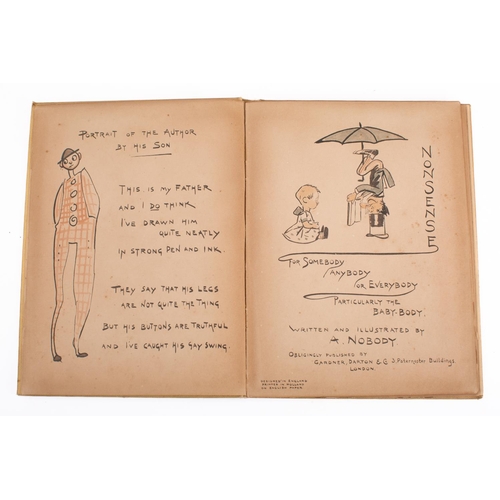 PORTRAIT OF THE AUTHOR
BY HIS SON
THIS IS MY FATHER
AND I DO THINK
I'VE DRAWN HIM
QUITE NEATLY
IN STRONG PEN AND INK.
THEY SAY THAT HIS LEGS
ARE NOT QUITE THE THING
BUT HIS BUTTONS ARE TRUTHFUL
AND I'VE CAUGHT HIS GAY SWING.
NONSENSE
FOR SOMEBODY
ANYBODY
OR EVERYBODY
PARTICULARLY THE
BABY-BODY.
WRITTEN AND ILLUSTRATED BY
A. NOBODY.
OBLIGINGLY PUBLISHED BY
GARDNER, DARTON & Co 3. Paternoster Buildings.
LONDON.
DESIGNED IN ENGLAND
PRINTED IN HOLLAND
ON ENGLISH PAPER